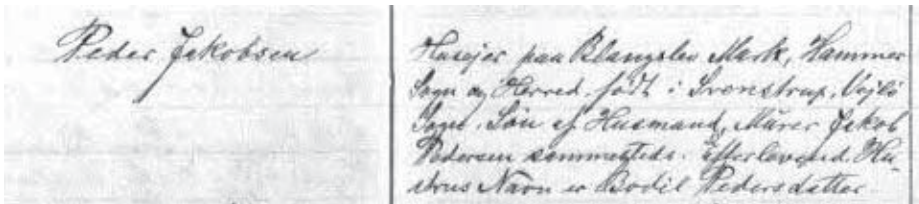 Peder Jakobsen
Husejer paa Blangslev Mark, Hammer
Sogn og Herred. født i Svenstrup, Vejlø
Sogn. Søn af Husmand, Murer Jakob
Pedersen sammesteds. Efterlevend. Hu-
strus Navn er Bodil Pedersdatter.